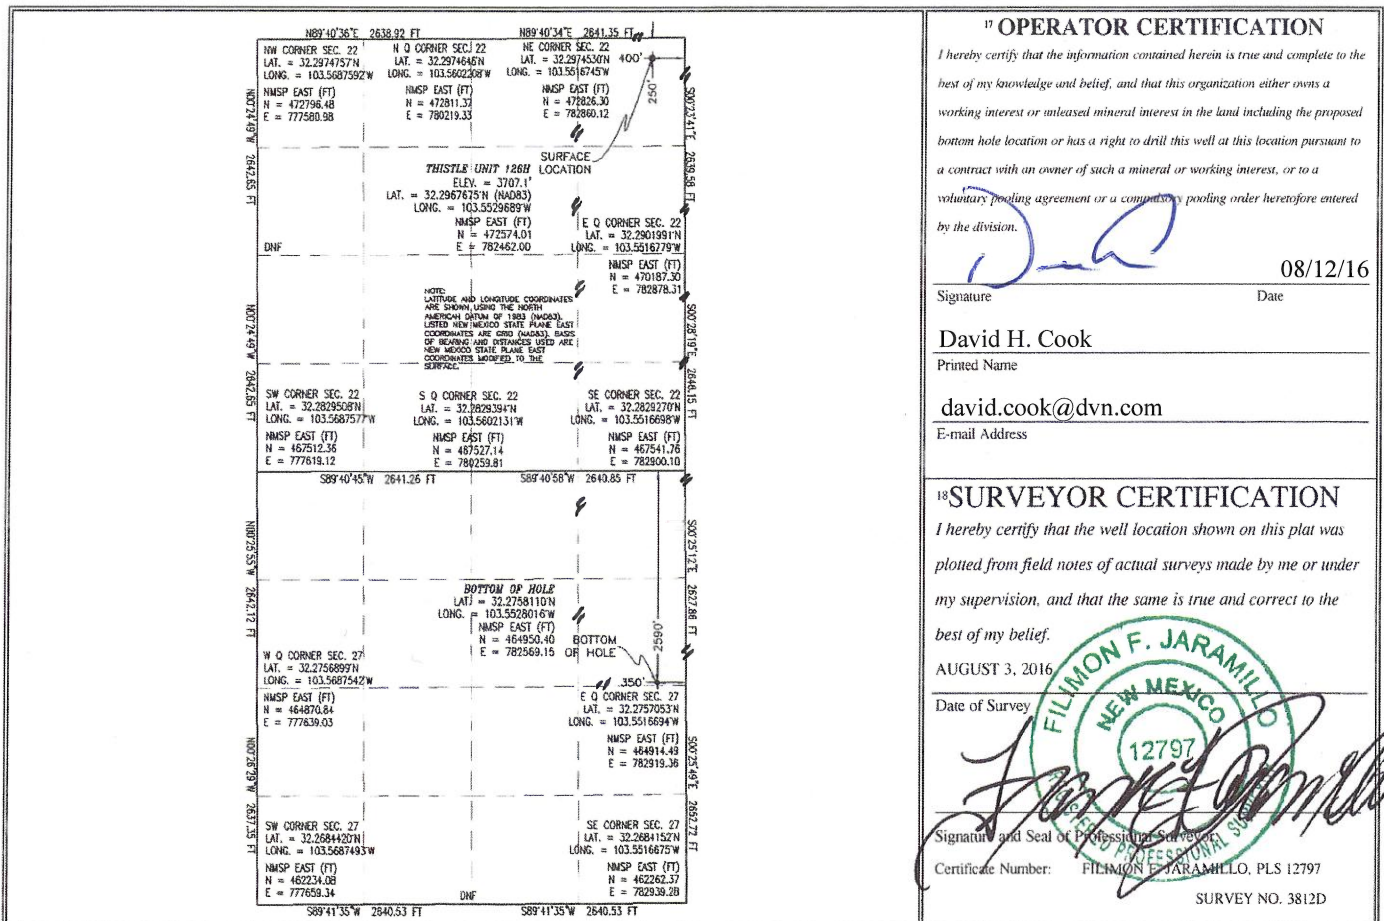 N89°40'36"E 2638.92 FT
N89°40'34"E 2641.35 FT
NW CORNER SEC. 22
LAT. = 32.2974757'N
LONG. = 103.5687592'W
NMSP EAST (FT)
N = 472796.48
E = 777580.98
N Q CORNER SEC. 22
LAT. = 32.2974646'N
LONG. = 103.5602208'W
NMSP EAST (FT)
N = 472811.37
E = 780219.33
NE CORNER SEC. 22
LAT. = 32.2974530'N
LONG. = 103.5516745'W
NMSP EAST (FT)
N = 472826.30
E = 782860.12
400'
250'
N00°24'49"W 2642.65 FT
S00°23'41"E 2639.58 FT
SURFACE
LOCATION
THISTLE UNIT 126H
ELEV. = 3707.1'
LAT. = 32.2967675'N (NAD83)
LONG. = 103.5529689'W
NMSP EAST (FT)
N = 472574.01
E = 782462.00
DNF
E Q CORNER SEC. 22
LAT. = 32.2901991'N
LONG. = 103.5516779'W
NMSP EAST (FT)
N = 470187.30
E = 782878.31
NOTE:
LATITUDE AND LONGITUDE COORDINATES
ARE SHOWN USING THE NORTH
AMERICAN DATUM OF 1983 (NAD83).
LISTED NEW MEXICO STATE PLANE EAST
COORDINATES ARE GRID (NAD83). BASIS
OF BEARING AND DISTANCES USED ARE
NEW MEXICO STATE PLANE EAST
COORDINATES MODIFIED TO THE
SURFACE.
N00°24'49"W 2642.65 FT
S00°28'19"E 2646.15 FT
SW CORNER SEC. 22
LAT. = 32.2829508'N
LONG. = 103.5687577'W
NMSP EAST (FT)
N = 467512.36
E = 777619.12
S Q CORNER SEC. 22
LAT. = 32.2829394'N
LONG. = 103.5602131'W
NMSP EAST (FT)
N = 467527.14
E = 780259.81
SE CORNER SEC. 22
LAT. = 32.2829270'N
LONG. = 103.5516698'W
NMSP EAST (FT)
N = 467541.76
E = 782900.10
S89°40'45"W 2641.26 FT
S89°40'58"W 2640.85 FT
N00°25'55"W 2642.12 FT
S00°25'12"E 2627.86 FT
BOTTOM OF HOLE
LAT. = 32.2758110'N
LONG. = 103.5528016'W
NMSP EAST (FT)
N = 464950.40
E = 782569.15
BOTTOM
OF HOLE
2590'
350'
W Q CORNER SEC. 27
LAT. = 32.2756899'N
LONG. = 103.5687542'W
NMSP EAST (FT)
N = 464870.84
E = 777639.03
E Q CORNER SEC. 27
LAT. = 32.2757053'N
LONG. = 103.5516694'W
NMSP EAST (FT)
N = 464914.49
E = 782919.36
N00°26'29"W 2637.35 FT
S00°25'49"E 2652.72 FT
SW CORNER SEC. 27
LAT. = 32.2684420'N
LONG. = 103.5687493'W
NMSP EAST (FT)
N = 462234.08
E = 777659.34
DNF
SE CORNER SEC. 27
LAT. = 32.2684152'N
LONG. = 103.5516675'W
NMSP EAST (FT)
N = 462262.37
E = 782939.28
S89°41'35"W 2640.53 FT
S89°41'35"W 2640.53 FT
17 OPERATOR CERTIFICATION
I hereby certify that the information contained herein is true and complete to the
best of my knowledge and belief, and that this organization either owns a
working interest or unleased mineral interest in the land including the proposed
bottom hole location or has a right to drill this well at this location pursuant to
a contract with an owner of such a mineral or working interest, or to a
voluntary pooling agreement or a compulsory pooling order heretofore entered
by the division.
08/12/16
Signature Date
David H. Cook
Printed Name
david.cook@dvn.com
E-mail Address
18 SURVEYOR CERTIFICATION
I hereby certify that the well location shown on this plat was
plotted from field notes of actual surveys made by me or under
my supervision, and that the same is true and correct to the
best of my belief.
AUGUST 3, 2016
Date of Survey
FILIMON F. JARAMILLO
NEW MEXICO
12797
REGISTERED PROFESSIONAL SURVEYOR
Signature and Seal of Professional Surveyor:
Certificate Number: FILIMON F. JARAMILLO, PLS 12797
SURVEY NO. 3812D